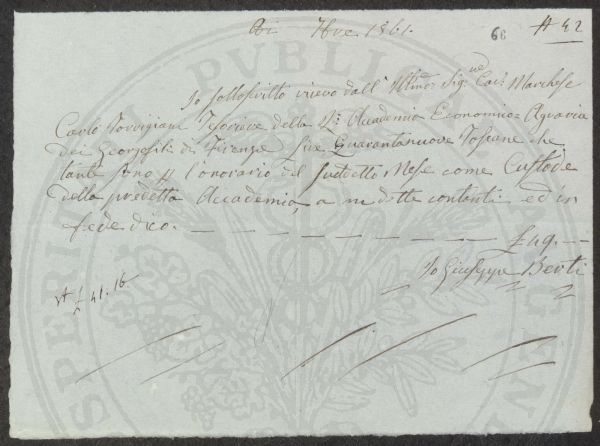 Adi 7bre 1861.
66
N 42
Io sottoscritto ricevo dall' Illmo Sigre Cavr Marchese
Carlo Torrigiani Tesoriere della Rl. Accademia Economico-Agraria
dei Georgofili di Firenze Lire Quarantanuove Toscane che
tante sono p l'onorario del suddetto Mese come Custode
della predetta Accademia, a me dette contanti ed in
fede dico. £ 49. —
Io Giuseppe Berti
£ 41. 16.
PUBLICAE